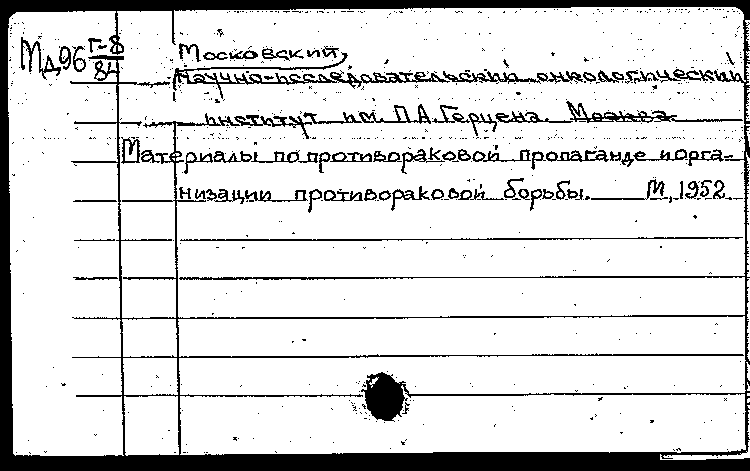 Мд96 Г-8/84 Московский
научно-исследовательский онкологический
институт им. П.А. Герцена. Москва
Материалы по противораковой пропаганде и орга-
низации противораковой борьбы. М, 1952